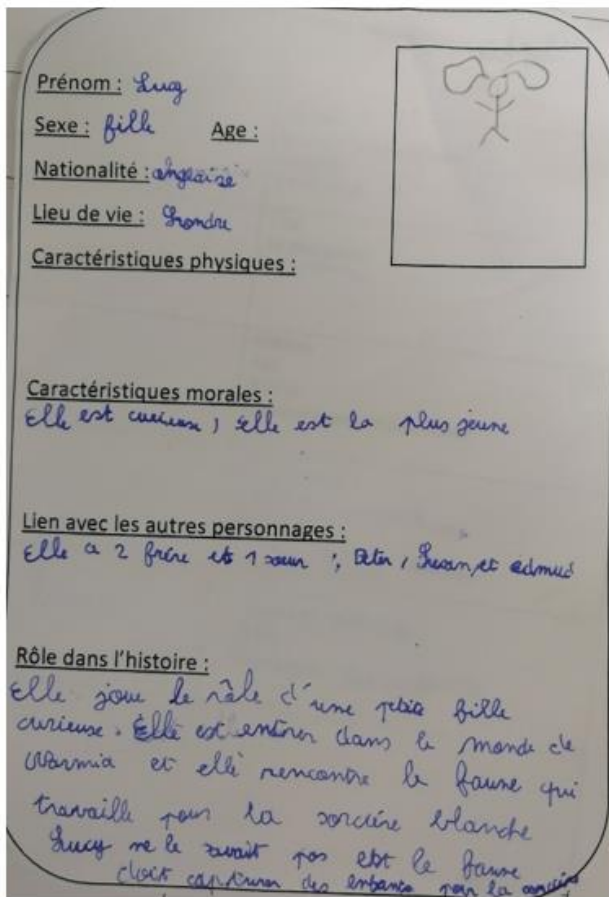 Prénom : Lucy
Sexe : fille Age :
Nationalité : anglaise
Lieu de vie : Londre
Caractéristiques physiques :
Caractéristiques morales :
Elle est curieuse, Elle est la plus jeune
Lien avec les autres personnages :
Elle a 2 frère et 1 sœur : Peter, Susan, et edmud
Rôle dans l'histoire :
Elle joue le rôle d'une petite fille
curieuse. Elle est entrer dans le monde de
Narmia et elle rencontre le faune qui
travaille pour la sorcière blanche
Lucy ne le savait pas est le faune
doit capturer des enfants pour la sorcière